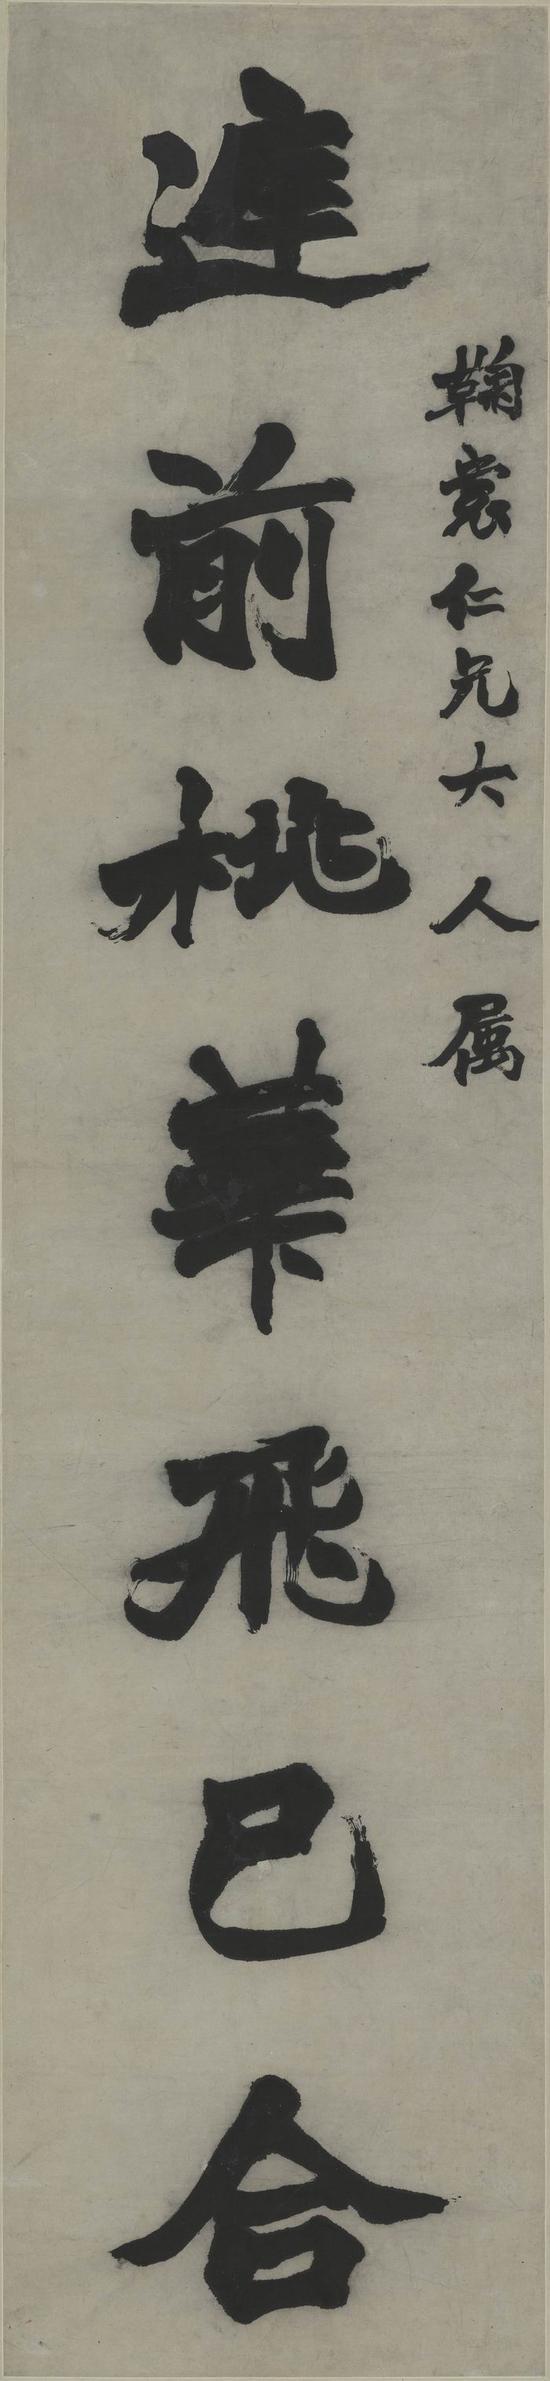 鞠裳仁兄大人属
進前桃華飛已合